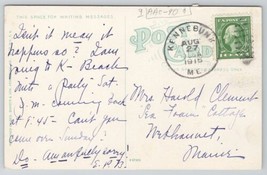 THIS SPACE FOR WRITING MESSAGES
POST CARD
KENNEBUNK
AUG
27
1915
ME.
Isn't it mean it
happens so? I am
going to K- Beach
with a Party Sat.
I'm coming back
at 5:45 - Can't you
come over Sunday?
Do - Am awfully sorry!
Mrs Harold Clement
Sea Foam Cottage
Maine